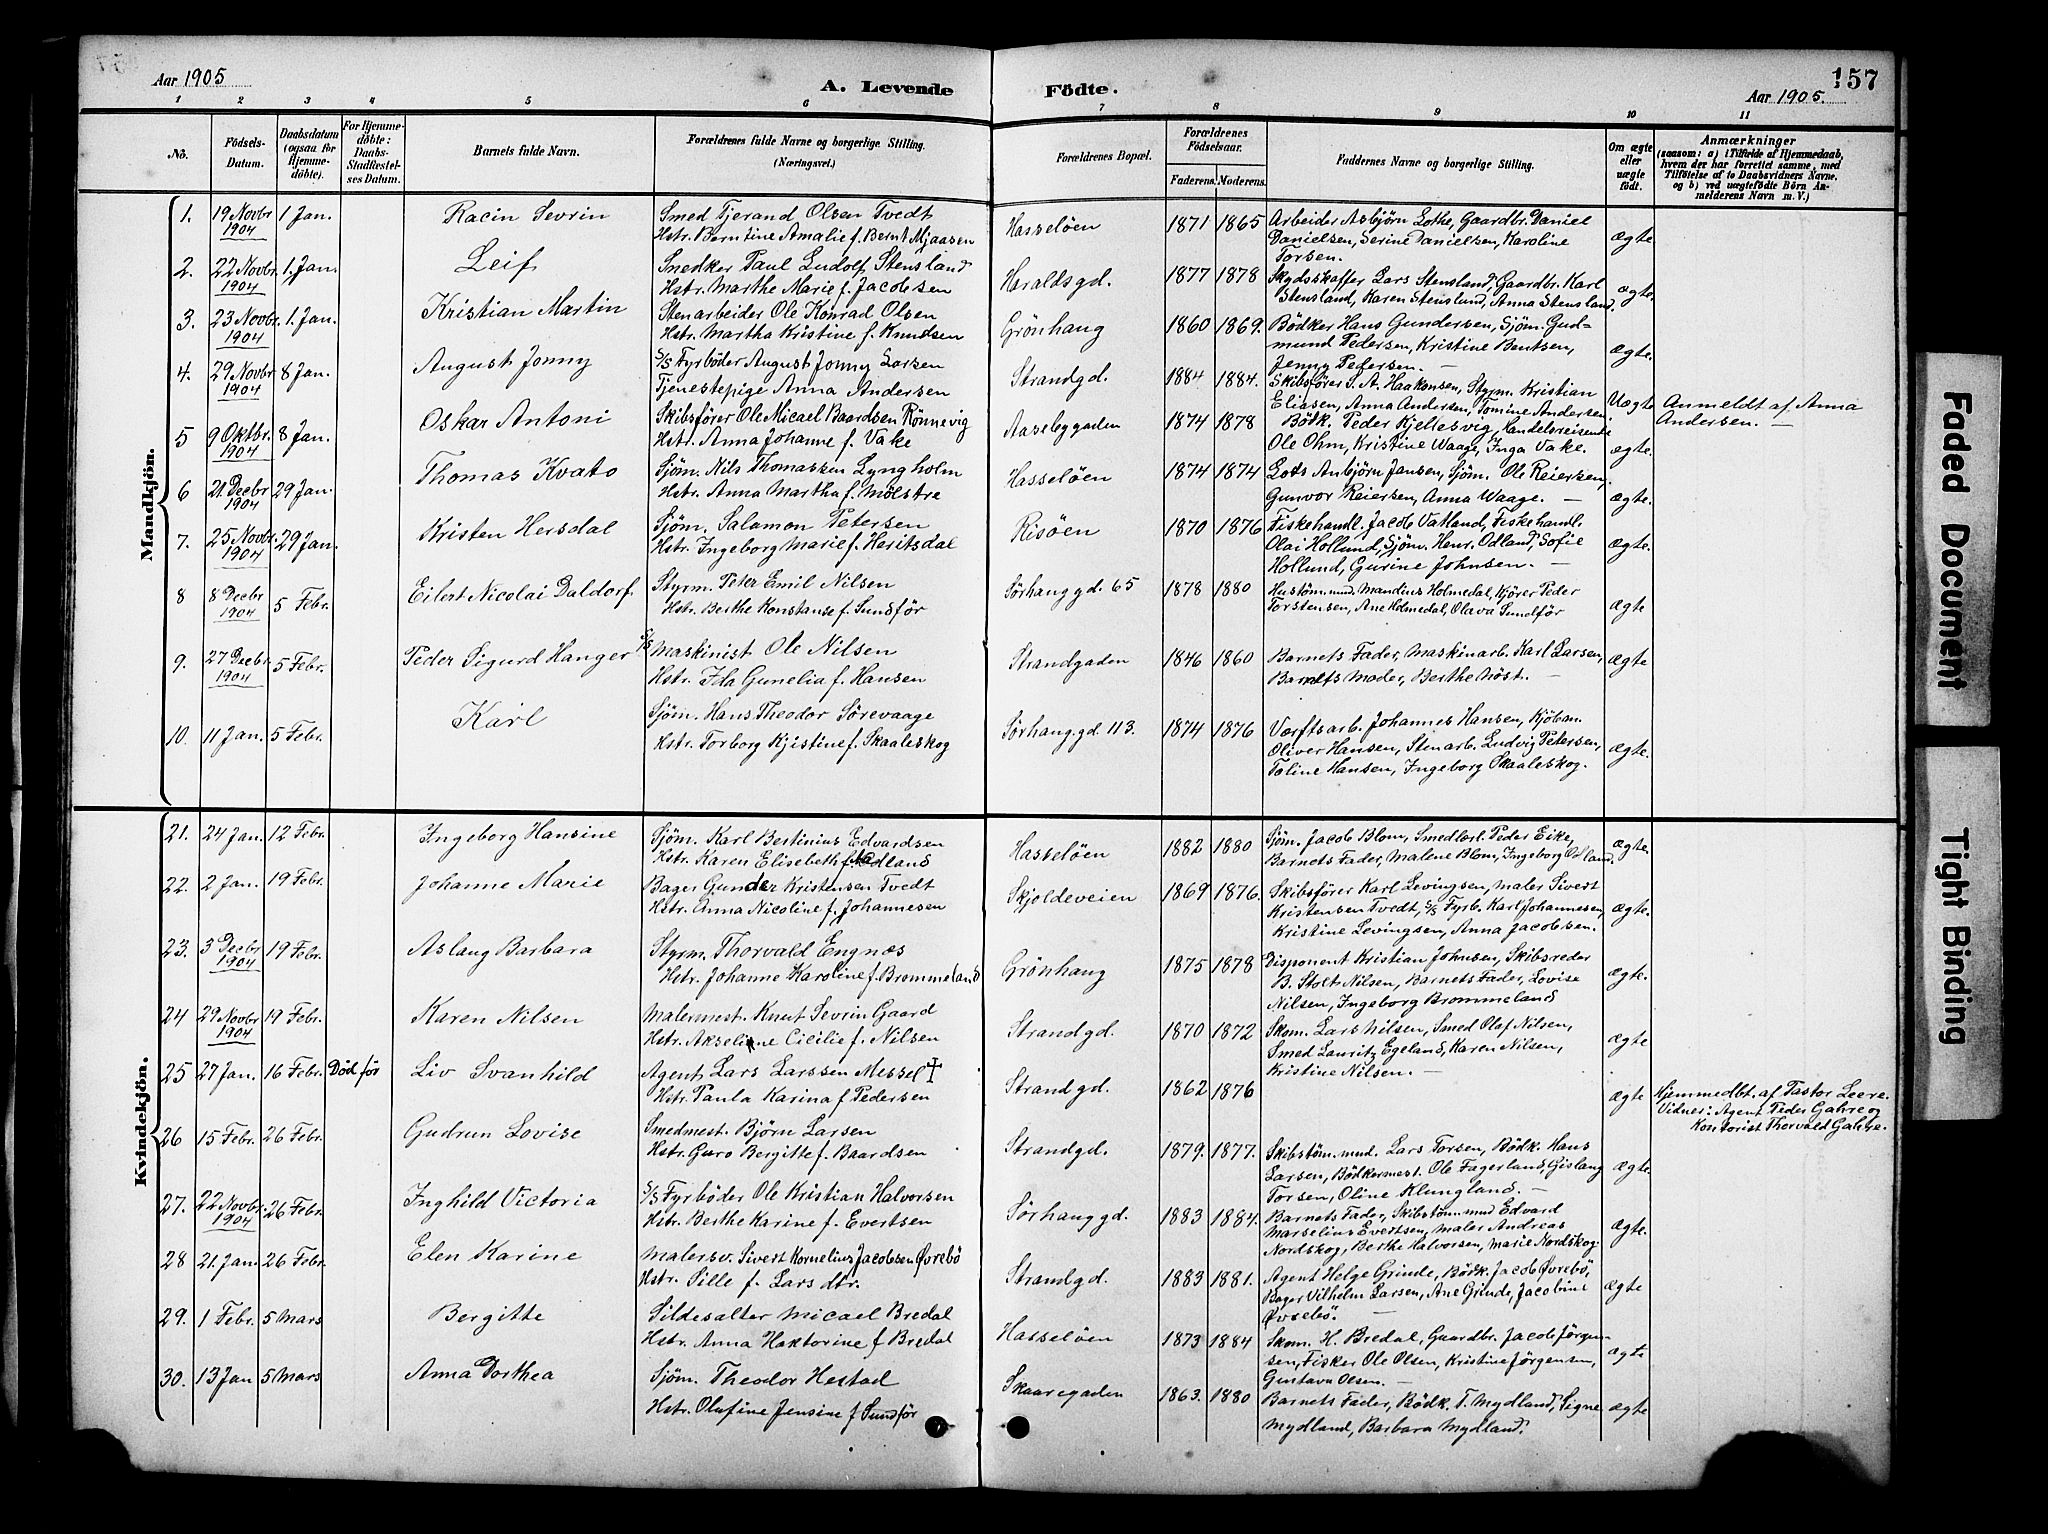 Aar 1905 A. Levende Födte. Aar 1905. 157
1 2 3 4 5 6 7 8 9 10 11
No. Födsels-Datum. Daabsdatum (ogsaa for Hjemmedöbte). For Hjemmedöbte: Daabs-Stadfæstelses Datum. Barnets fulde Navn. Forældrenes fulde Navne og borgerlige Stilling. (Næringsvei.) Forældrenes Bopæl. Forældrenes Födselsaar. Faderens. Moderens. Faddernes Navne og borgerlige Stilling. Om ægte eller uægte födt. Anmærkninger (saasom: a) i Tilfælde af Hjemmedaab, hvem der har forrettet samme, med Tilföielse af to Daabsvidners Navne, og b) ved uægtefödte Börn Anmelderens Navn m. V.)
Mandkjön.
1. 19 Novbr 1904 1 Jan. Racin Sevrin Smed Tjerand Olsen Tvedt Hasseløen 1871 1865 Arbeider Asbjørn Lothe, Gaardbr. Daniel
Hstr. Berntine Amalie f. Bernt Mjaasen Danielsen, Serine Danielsen, Karoline Ægte
Torsen.
2. 22 Novbr. 1904 1. Jan. Leif Snedker Paul Ludolf Stensland Haraldsgd. 1877 1878 Skydsskaffer Lars Stensland, Gaardbr. Karl
Hstr. Marthe Marie f. Jacobsen Stensland, Karen Stensland, Anna Stensland. Ægte.
3. 23 Novbr. 1904 1. Jan. Kristian Martin Stenarbeider Ole Konrad Olsen Grönhaug 1860 1869. Bødker Hans Gundersen, Sjøm. Gud=
Hstr. Martha Kristine f. Knudsen mund Pedersen, Kristine Bentsen, Ægte.
Jenny Petersen. —
4. 29 Novbr 1904 8 Jan. August Jonny S/S Fyrbøder August Jonny Larsen Strandgd. 1884 1884. Skibsfører S. A. Haakonsen, Styrm. Kristian
Tjenestepige Anna Andersen Eliasen, Anna Andersen, Tomine Andersen. Uægte Anmeldt af Anna
Andersen. —
5 9 Oktbr. 1904 8 Jan. Oskar Antoni Skibsfører Ole Micael Baardsen Rönnevig Aasebygaden 1874 1878 Bødk. Peder Kjellesvig, Handelsreisende
Hstr. Anna Johanne f. Vake Ole Ohm, Kristine Waage, Inga Vake. Ægte.
6 21. Decbr 1904 29 Jan. Thomas Kvato Sjöm. Nils Thomassen Lyngholm Hasseløen 1874 1874 Lods Anbjörn Jansen, Sjøm. Ole Reiersen,
Hstr. Anna Martha f. Mølstre Gunvor Reiersen, Anna Waage. — Ægte.
7. 25 Novbr. 1904 29 Jan. Kristen Hersdal Sjöm. Salamon Petersen Risöen 1870 1876 Fiskehandl. Jacob Vatland, Fiskehandl.
Hstr. Ingeborg Marie f. Heritsdal Olai Hollund, Sjøm. Henr. Odland, Sofie Ægte.
Hollund, Gurine Johnsen. —
8 8 Decbr 1904 5 Febr. Eilert Nicolai Daldorf Styrm. Peter Emil Nilsen Sørhauggd. 65 1878 1880 Hustøm.md. Mandius Holmedal, Kjører Peder
Hstr. Berthe Konstanse f. Sundfør Torstensen, Ane Holmedal, Olava Sundfør Ægte
9. 27 Decbr. 1904 5 Febr. Peder Sigurd Hanger S/S Maskinist Ole Nilsen Strandgaden 1846 1860 Barnets Fader, Maskinarb. Karl Larsen,
Hstr. Ida Gunelia f. Hansen Barnets Moder, Berthe Nöst. — Ægte
10. 11 Jan. 5 Febr. Karl Sjöm. Hans Theodor Sørevaage Sørhauggd. 113. 1874 1876 Værftsarb. Johannes Hansen, Kjøbm.
Hstr. Torborg Kristine f. Skaaleskog Oliver Hansen, Stenarb. Ludvig Petersen, Ægte.
Toline Hansen, Ingeborg Skaaleskog.
Kvindekjön.
21. 24 Jan. 12 Febr. Ingeborg Hansine Sjöm. Karl Bertinius Edvardsen Hasseløen 1882 1880 Sjøm. Jacob Blom, Smedlærl. Peder Eike,
Hstr. Karen Elisebeth f. Odland Barnets Fader, Malene Blom, Ingeborg Odland. Ægte.
22. 2 Jan. 19 Febr. Johanne Marie Bager Gunder Kristensen Tvedt Skjoldeveien 1869 1876. Skibsfører Karl Levingsen, Maler Sivert
Hstr. Anna Nicoline f. Johannesen Kristensen Tvedt, S/S Fyrb. Karl Johannesen, Ægte.
Kristine Levingsen, Anna Jacobsen.
23. 3 Decbr 1904 19 Febr. Aslaug Barbara Styrm. Thorvald Engnæs Grönhaug 1875 1878 Disponent Kristian Johnsen, Skibsreder
Hstr. Johanne Karoline f. Brommeland B. Stolt Nilsen, Barnets Fader, Lovise Ægte.
Nilsen, Ingeborg Brommeland
24 29 Novbr 1904 19 Febr. Karen Nilsen Malermest. Knut Sevrin Gaard Strandgd. 1870 1872 Skom. Lars Nilsen, Smed Olaf Nilsen,
Hstr. Akseline Cicilie f. Nilsen Smed Lauritz Egeland, Karen Nilsen, Ægte
Kristine Nilsen. —
25 27 Jan. 16 Febr. Död før Liv Svanhild Agent Lars Larssen Messel † Strandgd. 1862 1876 Ægte Hjemmedbt. af Pastor Leere.
Hstr. Paula Karina f. Pedersen Vidner: Agent Peder Gahre og
Kontorist Thorvald Gahre.
26 15 Febr. 26 Febr. Gudrun Lovise Smedmest. Björn Larsen Strandgd. 1879. 1877. Skibstøm.md. Lars Torsen, Bødk. Hans
Hstr. Guro Bergitte f. Baardsen Larsen, Bødkermest. Ole Fagerland, Gislaug Ægte
Torsen, Oline Klungland. —
27. 22 Novbr. 1904 26 Febr. Inghild Victoria S/S Fyrbøder Ole Kristian Halvorsen Sørhauggd. 1883 1884. Barnets Fader, Skibstøm.md Edvard
Hstr. Berthe Karine f. Evertsen Marselius Evertsen, Maler Andreas Ægte.
Nordskog, Berthe Halvorsen, Marie Nordskog.
28 21. Jan. 26 Febr. Elen Karine Malersv. Sivert Kornelius Jacobsen Øvrebö Strandgd. 1883 1881. Agent Helge Grinde, Bødk. Jacob Øvrebö,
Hstr. Sille f. Lars dtr. Bager Vilhelm Larsen, Ane Grinde, Jacobine Ægte
Øvrebö. —
29. 1 Febr. 5 Mars Bergitte Sildesalter Micael Bredal Hasseløen 1873 1884 Skom. H. Bredal, Gaardbr. Jacob Jørgen-
Hstr. Anna Haktorine f Bredal sen, Fisker Ole Olsen, Kristine Jørgensen, Ægte
Gustava Olsen. —
30. 13 Jan 5 Mars Anna Dorthea Sjöm. Theodor Hestad Skaaregaden 1863. 1880 Barnets Fader, Bødk. T. Mydland, Signe
Hstr. Olufine Jensine f. Sundför Mydland, Barbara Mydland. Ægte
Faded Document
Tight Binding